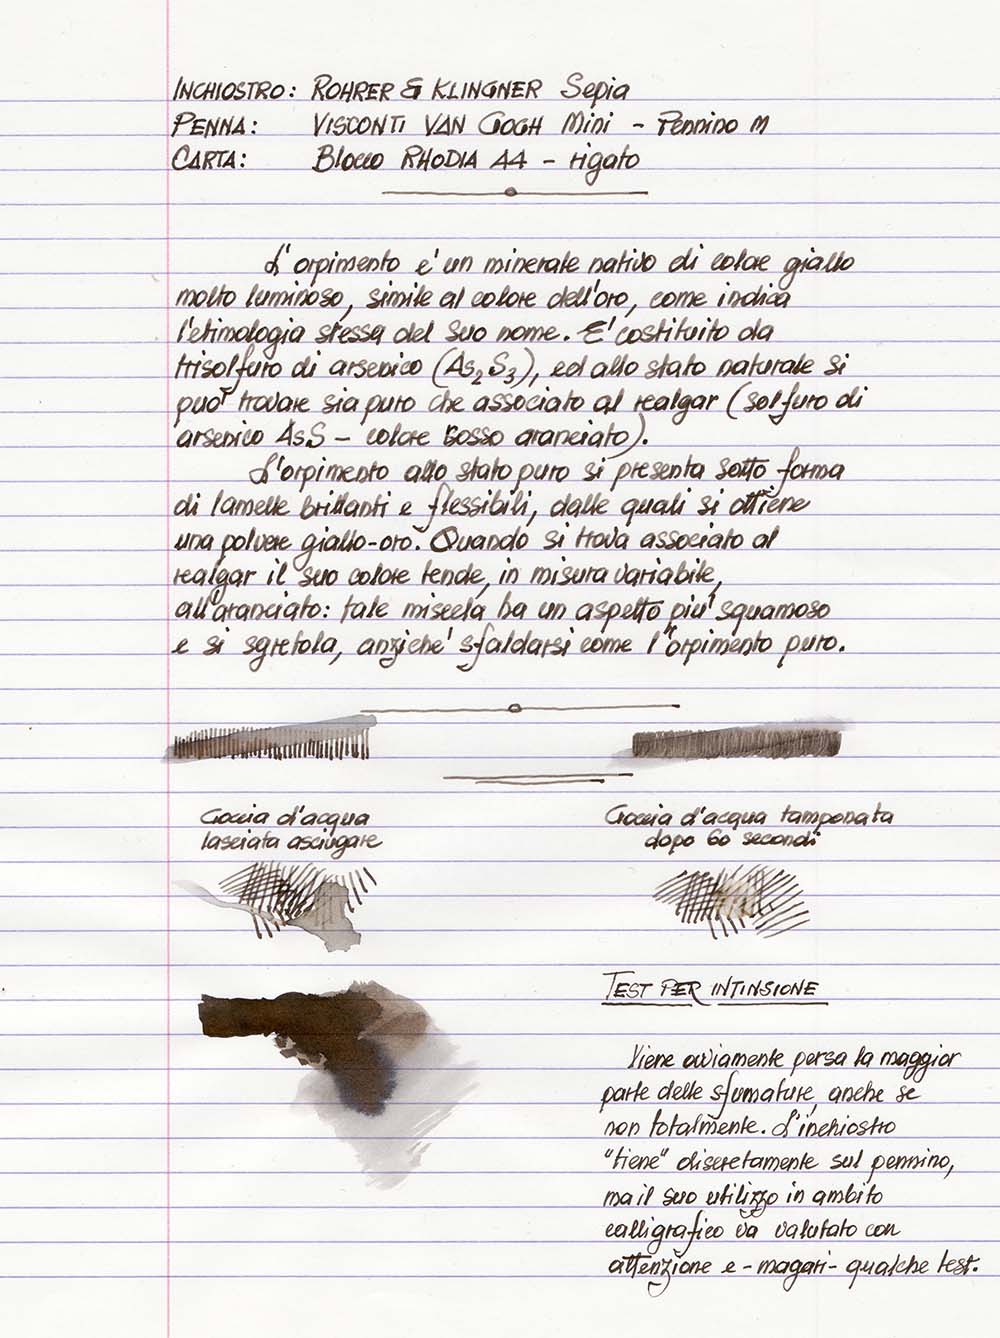 INCHIOSTRO: ROHRER & KLINGNER Sepia
PENNA: VISCONTI VAN GOGH Mini - Pennino M
CARTA: Blocco RHODIA 44 - rigato
L'orpimento e' un minerale nativo di colore giallo
molto luminoso, simile al colore dell'oro, come indica
l'etimologia stessa del suo nome. E' costituito da
trisolfuro di arsenico (As₂S₃), ed allo stato naturale si
puo' trovare sia puro che associato al realgar (solfuro di
arsenico AsS - colore rosso aranciato).
L'orpimento allo stato puro si presenta sotto forma
di lamelle brillanti e flessibili, dalle quali si ottiene
una polvere giallo-oro. Quando si trova associato al
realgar il suo colore tende, in misura variabile,
all'aranciato: tale miscela ha un aspetto piu' squamoso
e si sgretola, anziche' sfaldarsi come l'orpimento puro.
Goccia d'acqua
lasciata asciugare
Goccia d'acqua tamponata
dopo 60 secondi
TEST PER INTINSIONE
Viene ovviamente persa la maggior
parte delle sfumature, anche se
non totalmente. L'inchiostro
"tiene" discretamente sul pennino,
ma il suo utilizzo in ambito
calligrafico va valutato con
attenzione e - magari - qualche test.